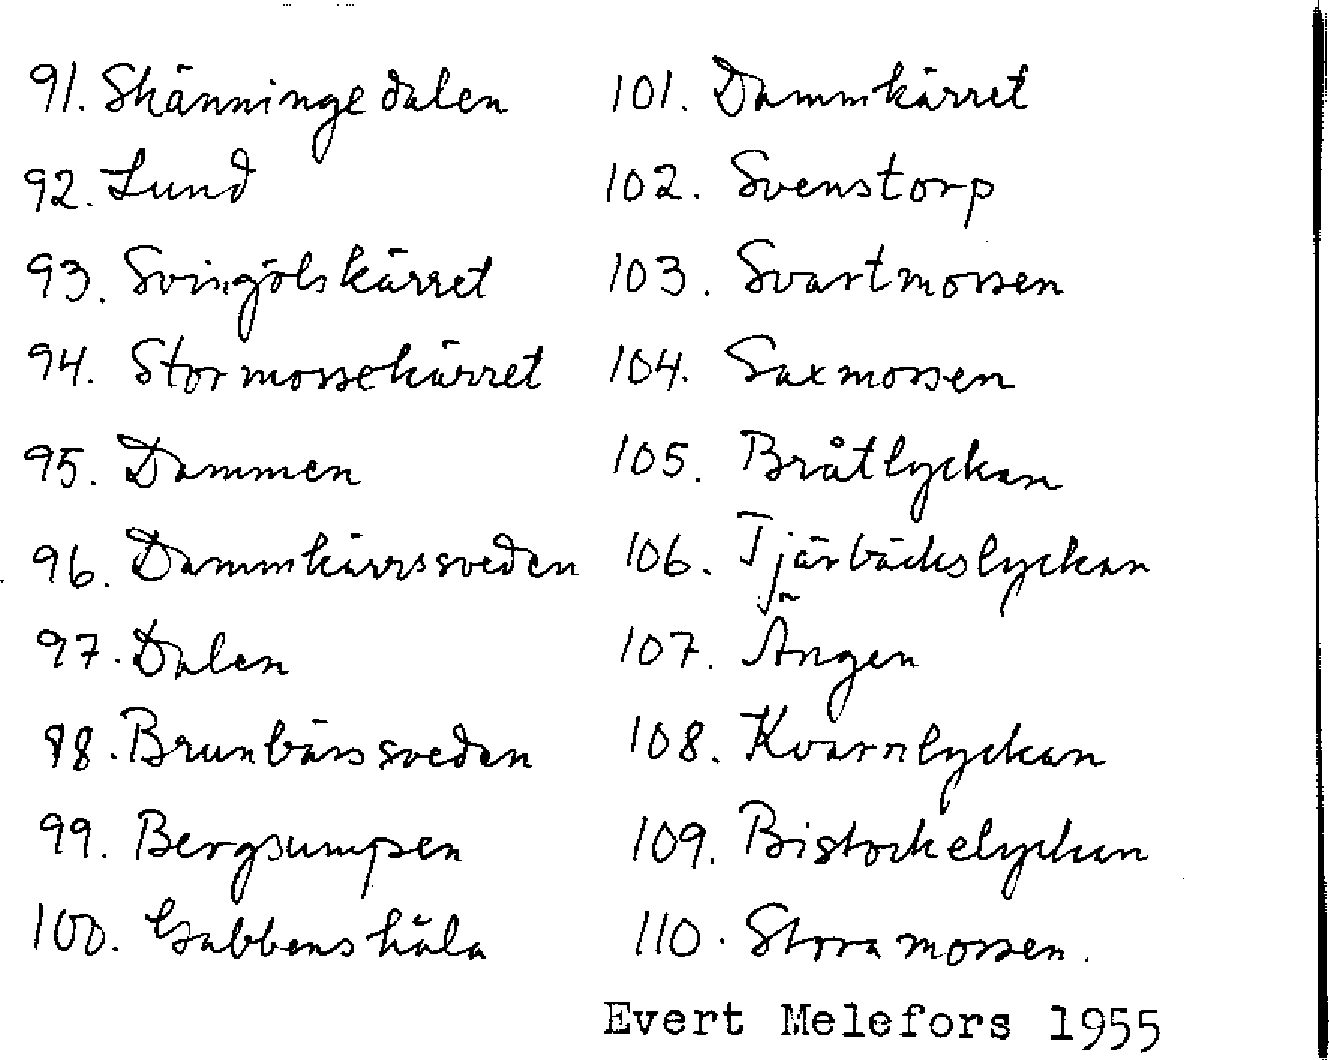 91. Skänningedalen
92. Lund
93. Svingölskärret
94. Stormossekärret
95. Dammen
96. Dammkärrssveden
97. Dalen
98. Brunbärssveden
99. Bergsumpen
100. Gubbens håla
101. Dammkärret
102. Svenstorp
103. Svartmossen
104. Saxmossen
105. Bråtlyckan
106. Tjärbäckslyckan
107. Ängen
108. Kvarnlyckan
109. Bistockelyckan
110. Stora mossen.
Evert Melefors 1955